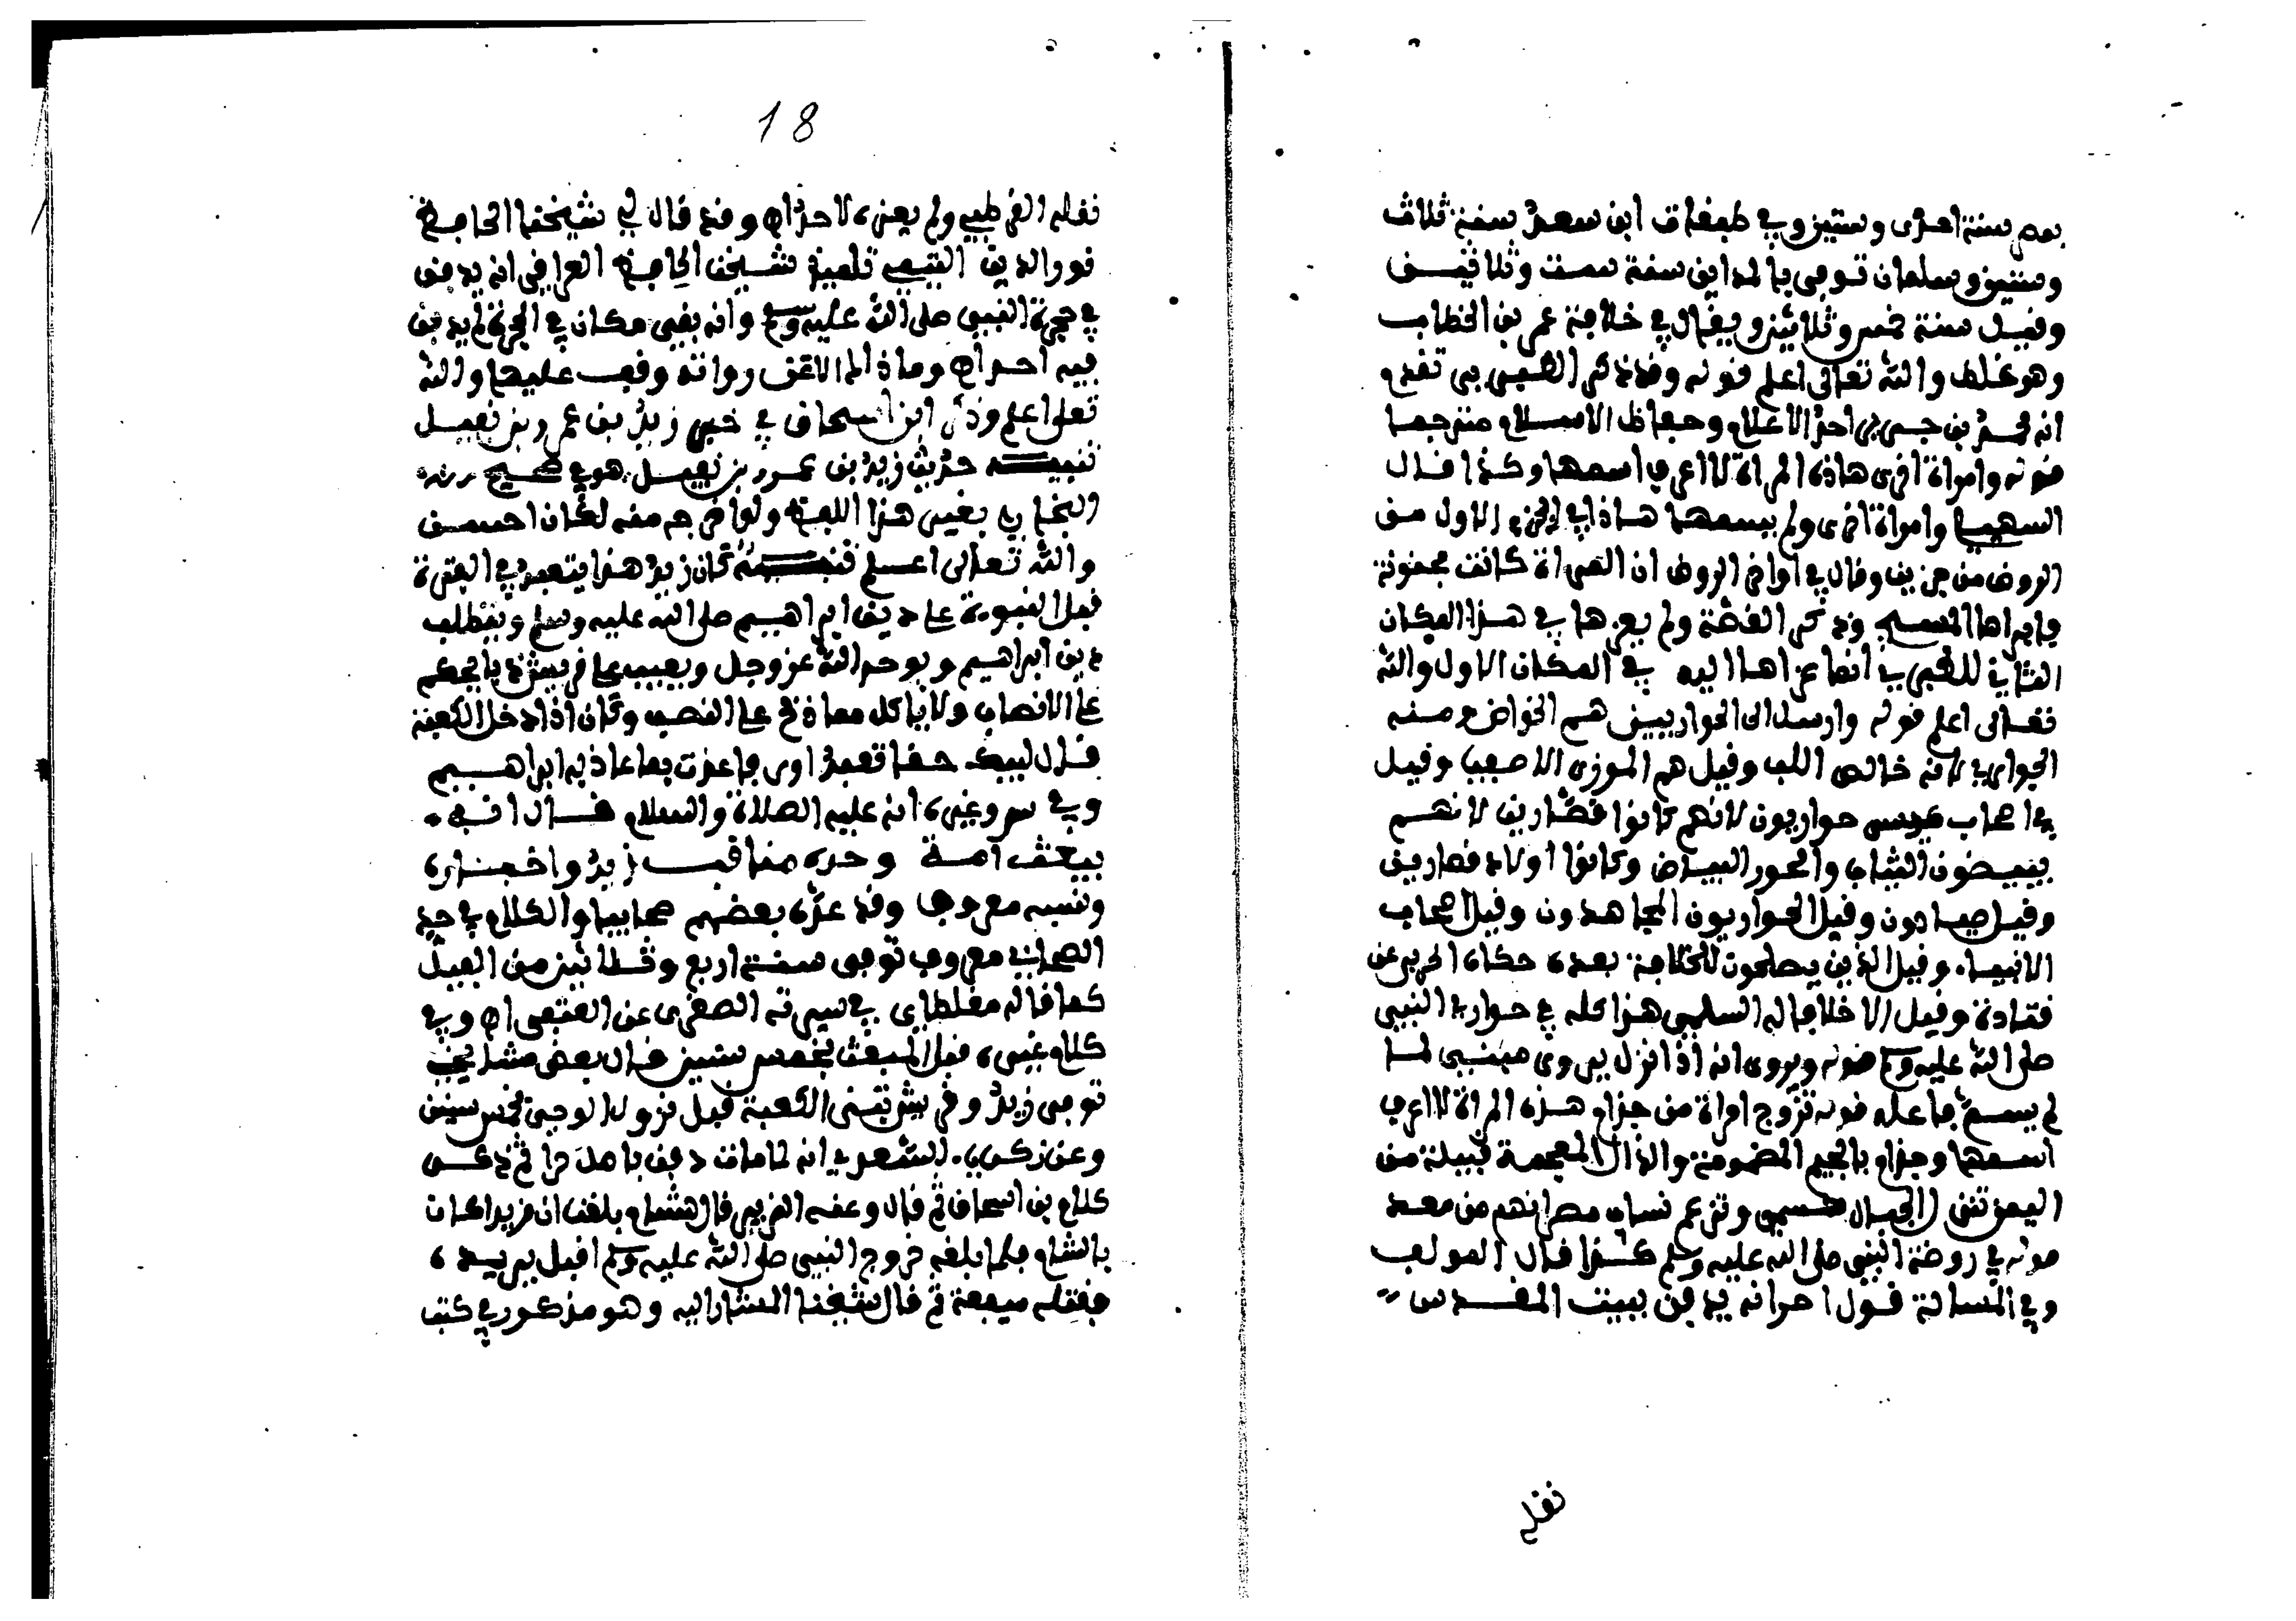 سنة احدى وستين وفي طبقات ابن سعد سنة ثلاث
وستين وسلمان توفي بالمداين سنة ست وثلاثين
وقيل سنة خمس وثلاثين ويقال في خلافة عمر بن الخطاب
وهو غلط والله تعالى اعلم قوله وقد ذكر الطبري تقدم
انه محمد بن جرير احد الاعلام وحفاظ الاسلام مترجما
قوله وامراة اخرى هاذه المراة لا اعرف اسمها وكذا قال
السهيلي وامراة اخرى ولم يسمها هاذا في الجزء الاول من
الروض من جزين وقال في اواخر الروض ان المراة كانت مجنونة
فابراها المسيح وذكر القصة ولم يعزها في هذا المكان
الثاني للطبري انما عزاها اليه في المكان الاول والله
تعالى اعلم قوله وارسل الى الحواريين هم الخواص ومنه
الحواري لانه خالص اللب وقيل هم الموزرى الاصفيا وقيل
في اصحاب عيسى حواريون لانهم كانوا قصارين لانهم
يبيضون الثياب والحور البياض وكانوا اولاد قصارين
وقيل صيادون وقيل الحواريون المجاهدون وقيل اصحاب
الانبياء وقيل الذين يصلحون للخلافة بعده حكاه الحربي عن
قتادة وقيل الاخلا قاله السلمي هذا كله في حواري النبي
صلى الله عليه وسلم قوله ويروى انه اذا نزل يروى مبني لما
لم يسم فاعله قوله تزوج امراة من جذام هذه المراة لا اعرف
اسمها وجذام بالجيم المضمومة والذال المعجمة قبيلة من
اليمن تنزل الجبال حسمى وتزعم نساب مضر انهم من معد
قوله في روضة النبي صلى الله عليه وسلم كذا قال المولف
وفي المسالة قول اخر انه يدفن ببيت المقدس
نقله
18
نقله القرطبي ولم يعزه لاحد اه وقد قال لي شيخنا الحافظ
نور الدين الهيثمي تلميذ شيخنا الحافظ العراقي انه يدفن
في حجرة النبي صلى الله عليه وسلم وانه بقي مكان في الحجرة لم يدفن
فيه احد اه وما ذاك الا عن رواية وقف عليها والله
تعلى اعلم وذكر ابن اسحاق في خبر زيد بن عمرو بن نفيل
تنبيه حديث زيد بن عمرو بن نفيل هو في صحيح
البخاري بغير هذا اللفظ ولو اخرجه منه لكان احسن
والله تعالى اعلم تنبيه كان زيد هذا يتعبد في الفترة
قبل النبوة على دين ابراهيم صلى الله عليه وسلم ويتطلب
دين ابراهيم ويوحد الله عز وجل ويعيب على قريش ذبايحهم
على الانصاب ولا ياكل مما ذبح على النصب وكان اذا دخل الكعبة
قال لبيك حقا تعبدا ورقا عذت بما عاذ به ابراهيم
وفي س وغيره انه عليه الصلاة والسلام قال انه
يبعث امة وحده مناقب زيد واخباره
ونسبه معروف وقد عده بعضهم صحابيا والكلام في حد
الصحابي معروف توفي سنة اربع وثلاثين من الفيل
كما قاله مغلطاي في سيرته الصغرى عن العتقي اه وفي
كلام غيره قبل المبعث بخمس سنين قال بعض مشايخي
توفي زيد وقريش تبني الكعبة قبل نزول الوحي بخمس سنين
وعن زكرياء السعدي انه لما مات دفن باصل حرا ثم ذكر
كلام بن اسحاق ثم قال وعند الزبير قال هشام بلغنا ان زيدا كان
بالشام فلما بلغه خروج النبي صلى الله عليه وسلم اقبل يريده
فقتله ميفعة ثم قال شيخنا المشار اليه وهو مذكور في كتب